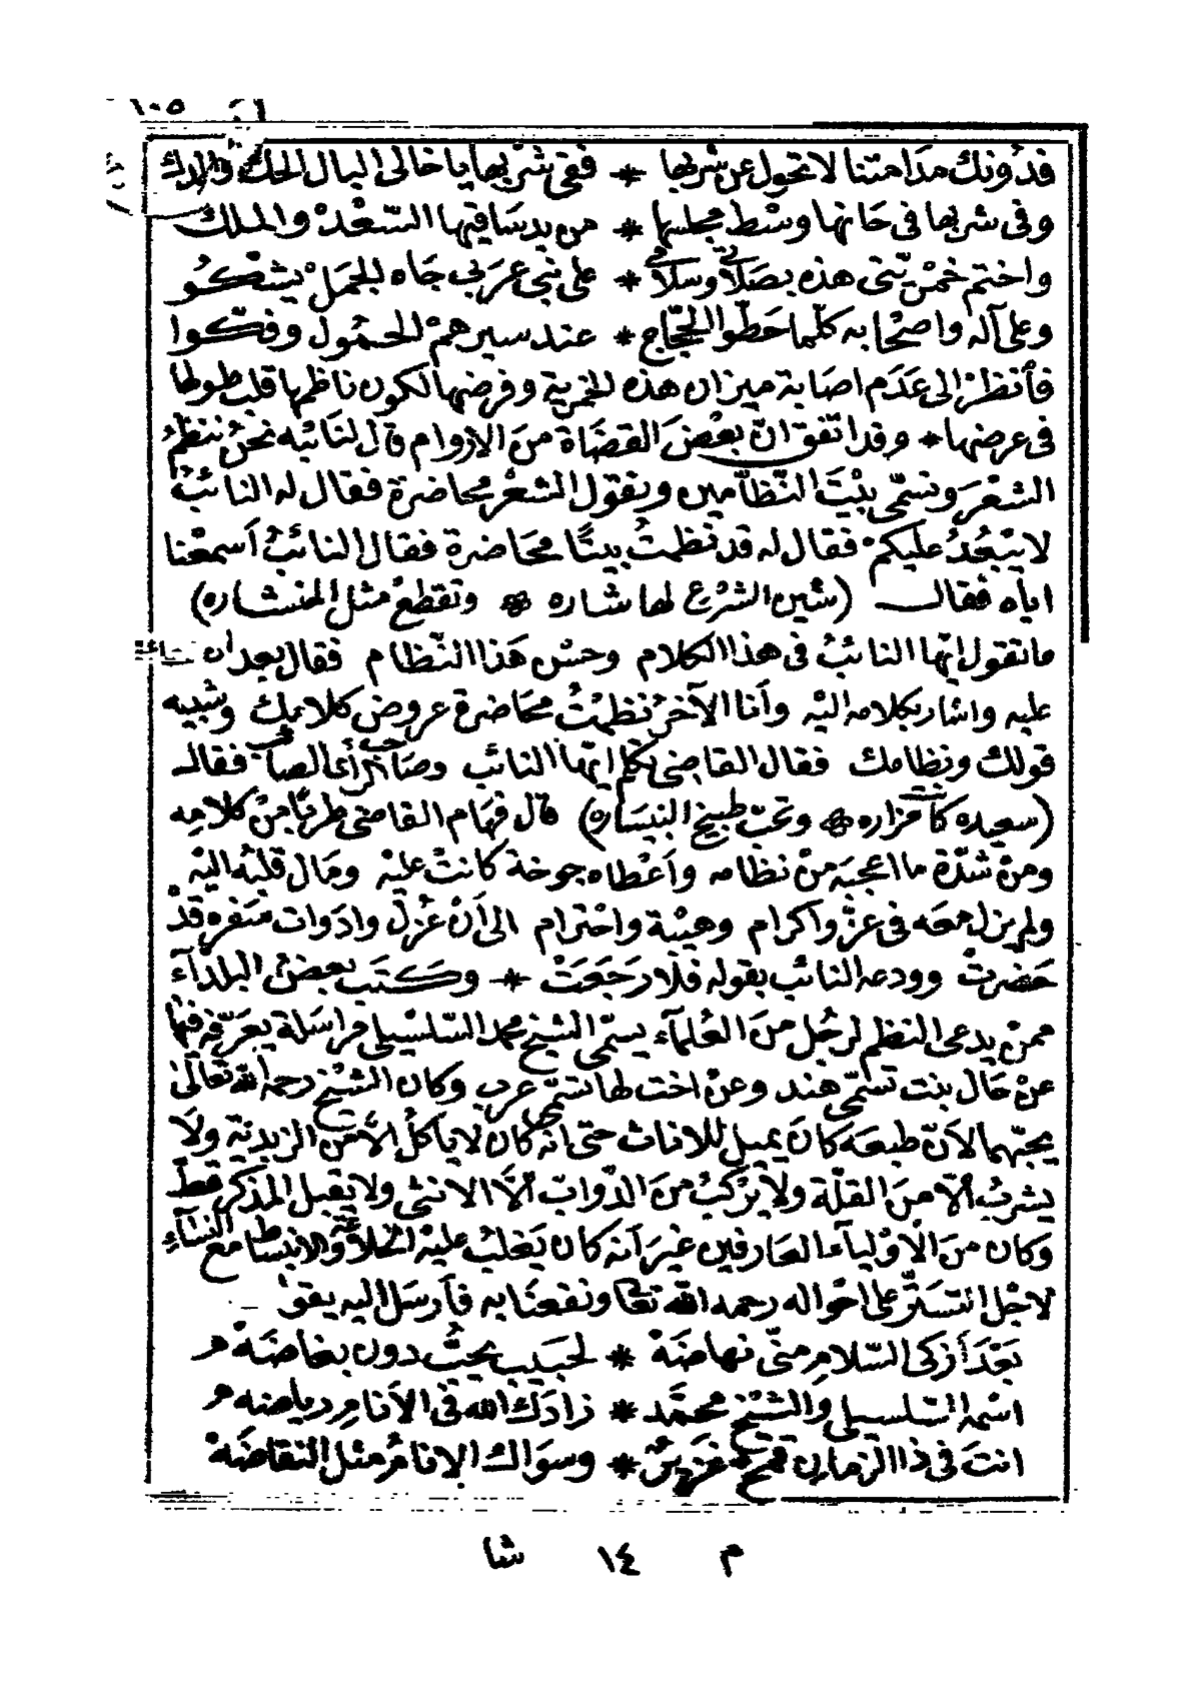 ١٠٥
فدونك مدامتنا لا تحول عن شربها * ففى شربها يا خالى البال الحك والدك
وفى شربها فى حانها وسط مجلسها * من يد ساقيها السّعْدْ والملك
واختم خمْريّتى هذه بصلاتى وسلامى * على نبى عربى جاه الجمل يشكُو
وعلى آله واصحابه كلّما حَطّوا الحجّاج * عند سيرهمْ الحمُول وفكّوا
فأنظرْ الى عَدَم اصابة ميزان هذه الخمرية وفرضها لكون ناظمها قلب طولها
فى عرضها * وقد اتّفق انّ بعْضَ القضَاة منَ الاروام قال لنائبه نحنُ ننظمُ
الشعْرَ ونسمّى بيْتَ النّظاّمين ونقول الشعْر محاضرة فقال له النائبُ
لا يبْعُدُ عليكمْ فقال له قد نظمتُ بيتًا محَاضرة فقال النائبُ أسمعْنا
اياه فقال (شين الشرْع لها شاره * وتقطعْ مثل المنشاره)
ما تقول ايّها النائبُ فى هذا الكلام وحسْن هَذا النّظام فقال بعد ان
عليه واشار بكلامه اليْه وأنا الآخرْ نظمْتُ محَاضرة عروض كلامك وشبيه
قولك ونظامك فقال القاضى تكلم ايّها النائب وصَاحب الرأى الصائب فقال
(سعيده كا قزاره * وتحب طبيخ البيسَاره) قال فهام القاضى طربًا منْ كلامه
ومنْ شدّة ما اعجبَه منْ نظامه وأعْطاه جوخة كانتْ عليْه ومَال قلبُه اليْه
ولم يزل معَه فى عزّ واكرام وهيْبة واحْترام الى أنْ عُزلْ وادَوات سَفره قدْ
حَضرتْ وودعه النائب بقوله فلا رَجَعَتْ * وكَتَبَ بعضُ البلدآء
ممنْ يدعى النظم لرجُل منَ العُلمآء يسمّى الشيخ محمد السّلسْيلى مراسَلة يعَرّفه فيْها
عنْ حَال بنت تسمّى هند وعنْ اخت لها تسمّى عرب وكان الشيْخ رحمه الله تعَالى
يحبّهما لأنّ طبعَه كانَ يميل للاناث حتى انّه كان لا يأكلُ الاّ منَ الزبديّة ولاَ
يشربُ الاّ منَ القلّة ولا يرْكبُ منَ الدّوابّ الاّ الانثى ولا يقبل المذكرَ قطّ
وكان منَ الاوْليآء العَارفين غيرَ أنه كان يَغلبُ عليْه الخلاَعَة والانبسَاط مع النسَآءِ
لاجْل التستّر على احْواله رحمه الله تعَالى ونفعنَا به فأرسَل اليه يقول
بَعْدَ أزكى السّلامِ منّى نهاضَهْ * لحَبيب يحبُّ دون بغاضَهْ
اسمه السّلسيلى والشيْخ محمّد * زادَك الله فى الأنامِ رياضه
انتَ فى ذا الزمان قمْح غزيرٌ * وسوَاك الانامُ مثل النقاضَهْ
م ١٤ شا